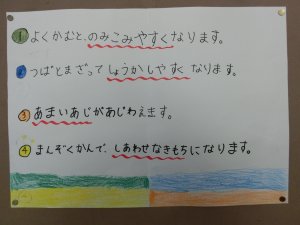 1 よくかむと、のみこみやすくなります。
2 つばとまざってしょうかしやすくなります。
3 あまいあじがあじわえます。
4 まんぞくかんで、しあわせなきもちになります。